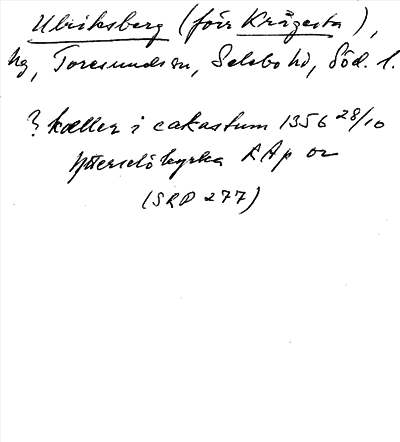 Ulriksberg (förr Krägesta),
hg, Toresunds sn, Selebo hd, Söd. l.
? kætter i cakastum 1356 28/10
Ytterselö kyrka RAp or
(SRP 277)